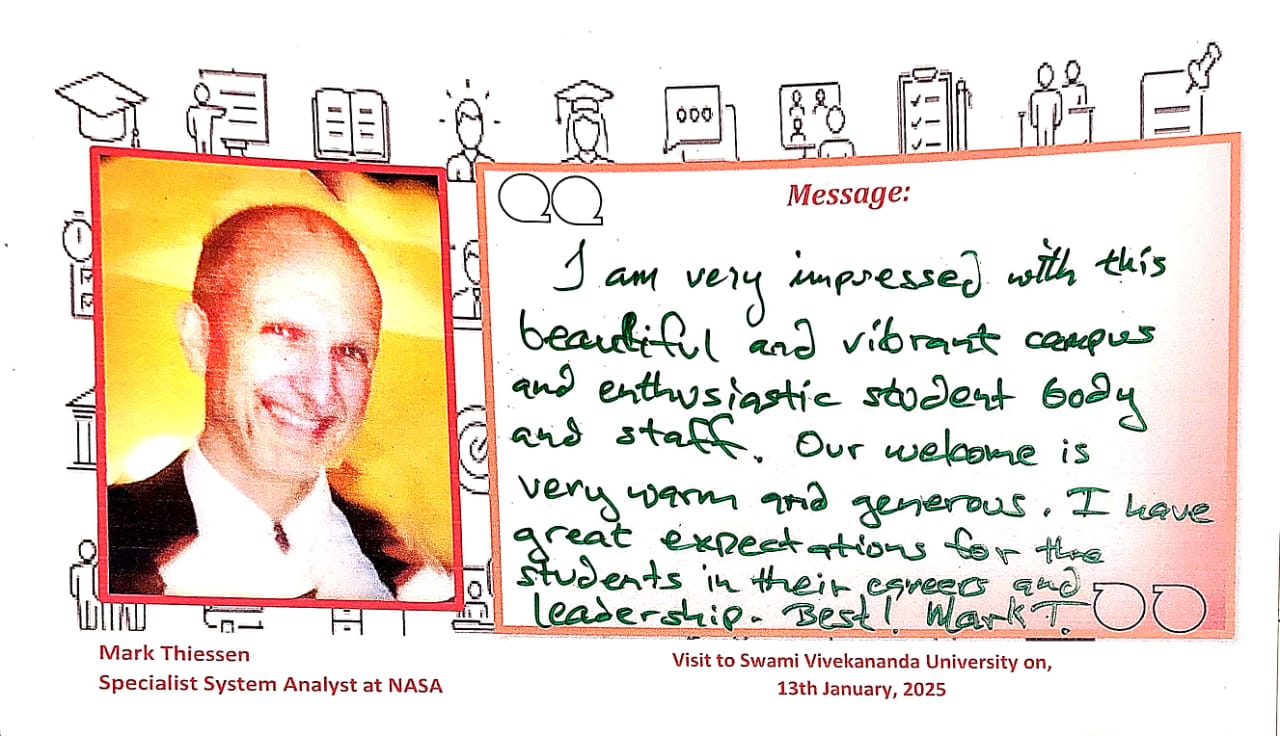 Message:
I am very impressed with this
beautiful and vibrant campus
and enthusiastic student body
and staff. Our welcome is
very warm and generous. I have
great expectations for the
students in their careers and
leadership. Best! Mark T.
Mark Thiessen
Specialist System Analyst at NASA
Visit to Swami Vivekananda University on,
13th January, 2025